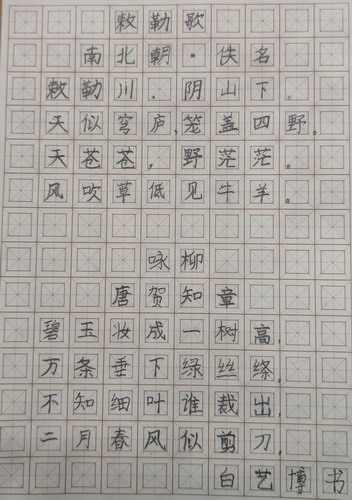 敕勒歌
南北朝·佚名
敕勒川,阴山下。
天似宫庐,笼盖四野。
天苍苍,野茫茫。
风吹草低见牛羊。
咏柳
唐贺知章
碧玉妆成一树高,
万条垂下绿丝绦,
不知细叶谁裁出,
二月春风似剪刀,
白艺博书